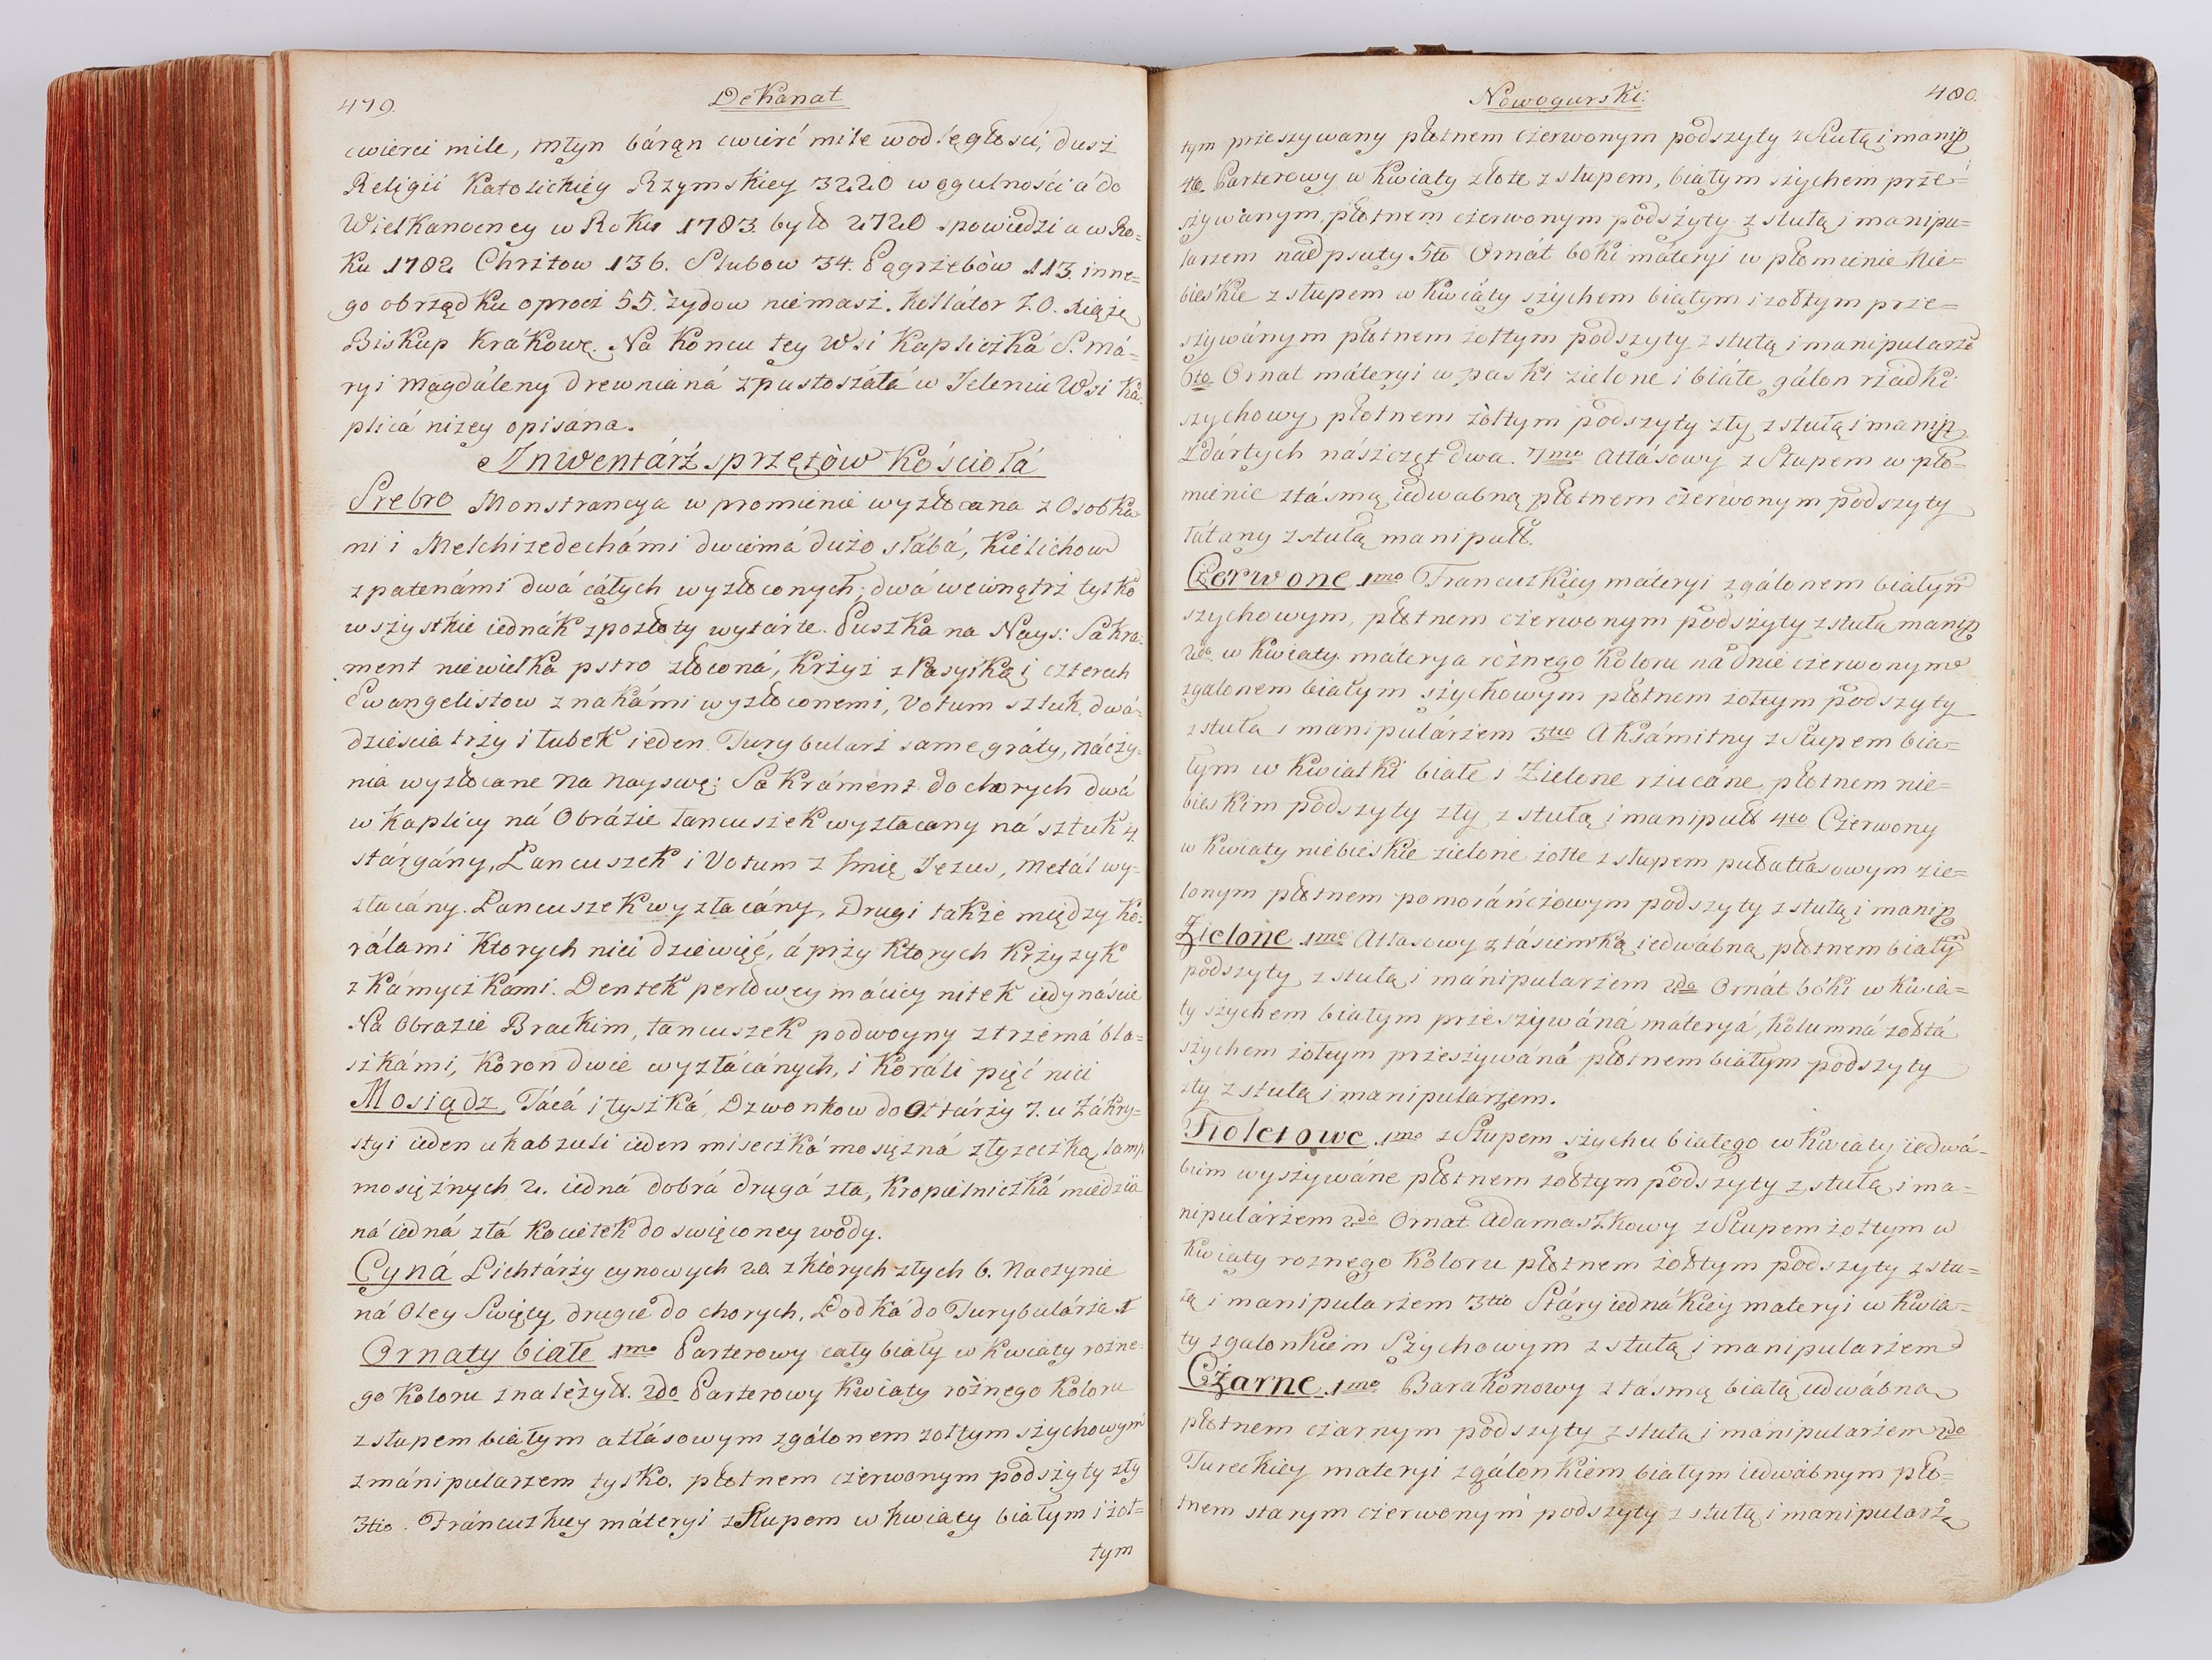 479.
Dekanat
cwierci mile, młyn bárąn cwierć mile wodległości, dusz
Religii Katolickiéy Rzymskiey 3220 wogulności á do
Wielkanocney w Roku 1783. było 2720 spowiedzi a w Ro=
ku 1782 Chrztow 136. Slubow 34. Pogrzebòw 113. inne=
go obrządku oprocz 55. żydow niemasz. Kollátor J.O. Xiąże
Biskup Krákows. Na Końcu tey Wsi Kapliczká S. Má=
ryi Magdáleny drewnianá zpustoszáłá w Jeleniu Wsi Ka=
plicá niżey opisána.
Inwentárz sprzętòw Kościołá
Srebro Monstrancya w promienie wyzłocana z Osobka=
mi i Melchizedechámi dwiemá dużo słábá, Kielichow
z patenámi dwá cáłych wyzłoconych, dwá wewnątrz tylko
wszystkie iednák zpozłoty wytárte. Puszka na Nays: Sakra=
ment niewielka pstro złoconá, Krzyż z Passyiką i czterech
Ewangelistow znakámi wyzłoconemi, Votum sztuk dwá=
dzieścia trzy i łubek ieden. Turybularz same gráty, náczy=
nia wyzłocane na Nayswę: Sakráment do chorych dwá
w Kaplicy ná Obrázie łancuszek wyzłacany ná sztuk 4.
stárgány, Łancuszek i Votum z Imię Jezus, metál wy=
złacány. Łancuszek wyzłacány, Drugi także między Ko=
rálami Ktorych nici dziewięć, á przy Ktorych Krzyzyk
z kámyczkami. Dentek perłowey mácicy nitek iedynáście
Na Obrazie Brackim, łancuszek podwoyny z trzemá bla=
szkámi, Koron dwie wyzłácánych, i Koráli pięć nici
Mosiądz Tácá i łyszká, Dzwonkow do Ołtárzy 7. u Zákry=
styi ieden u kabzuli ieden miseczká mosiężná z łyżeczką, lamp
mosiężnych 2. iedná dobrá drugá zła, Kropielniczká miedzia
ná iedná złá Kociełek do swięconey wody.
Cyná Lichtárzy cynowych 20. z ktòrych złych 6. Naczynie
ná Oley Swięty, drugie do chorych. Łodká do Turybulárza 1
Ornaty białe 1mo Parterowy cały biały w kwiaty rożne=
go koloru z należyt. 2do Parterowy Kwiaty ròżnego Koloru
z słupem białym atłásowym z gálonem żołtym szychowym
z mánipularzem tylko, płotnem czerwonym podszyty zły
3tio. Fráncuzkiey máteryi z słupem w kwiaty białym i żoł=
tym
Nowogurski:
480.
tym przeszywany płotnem czerwonym podszyty z stułą i manip
4to. Parterowy w Kwiaty złote z słupem, białym szychem prze=
szywanym, płotnem czerwonym podszyty z stułą i manipu=
larzem nadpsuty 5to Ornát boki máteryi w płomienie Nie=
bieskie z słupem w kwiáty szychem białym i żołtym prze=
szywánym płotnem żołtym podszyty z stułą i manipularze
6to Ornat máteryi w paski zielone i białe, gálon rzadki
szychowy, płotnem żołtym podszyty zły z stułą i manip
Zdártych nászczęt dwa. 7mo Atłásowy z Słupem w pło=
mienie z tásmą iedwabną płotnem czerwonym podszyty
łátany z stułą manipuł.
Czerwone 1mo Francuzkiey máteryi z gálonem białym
szychowym, płotnem czerwonym podszyty z stuła manip
2do. w Kwiaty materya ròżnego Koloru ná dnie czerwonym
z galonem białym szychowym płotnem żołtym podszyty
z stuła i manipulárzem 3tio Aksámitny z Słupem bia=
łym w kwiatki białe i Zielone rzucane, płotnem nie=
bieskim podszyty zły z stułą i manipuł 4to Czerwony
w Kwiaty niebieskie zielone żołte z słupem pułatłasowym zie=
lonym płotnem pomoráńczowym podszyty z stułą i manip
Zielone 1mo Atłasowy z tásiemką iedwabną, płotnem biały
podszyty z stułą i mánipularzem 2do Ornát boki w kwia=
ty szychem białym przeszywáná máteryá, Kolumná żołtá
szychem żołtym przeszywáná płotnem białym podszyty
zły z stułą i manipulárzem.
Fioletowe 1mo z Słupem szychu białego w Kwiaty iedwá=
biem wyszywáne płotnem żołtym podszyty z stułą i ma=
nipularzem 2do Ornat Adamaszkowy z Słupem żołtym w
Kwiaty rożnego Koloru płotnem żołtym podszyty z stu=
łą i manipularzem 3tio Stáry iednákiey materyi w Kwia=
ty z galonkiem Szychowym z stułą i manipularzem
Czarne 1mo Barakonowy z tásmą białą iedwábną
płotnem czarnym podszyty z stułą i mánipularzem 2do
Tureckiey materyi z gálonkiem białym iedwábnym pło=
tnem starym czerwonym podszyty z stułą i manipularze